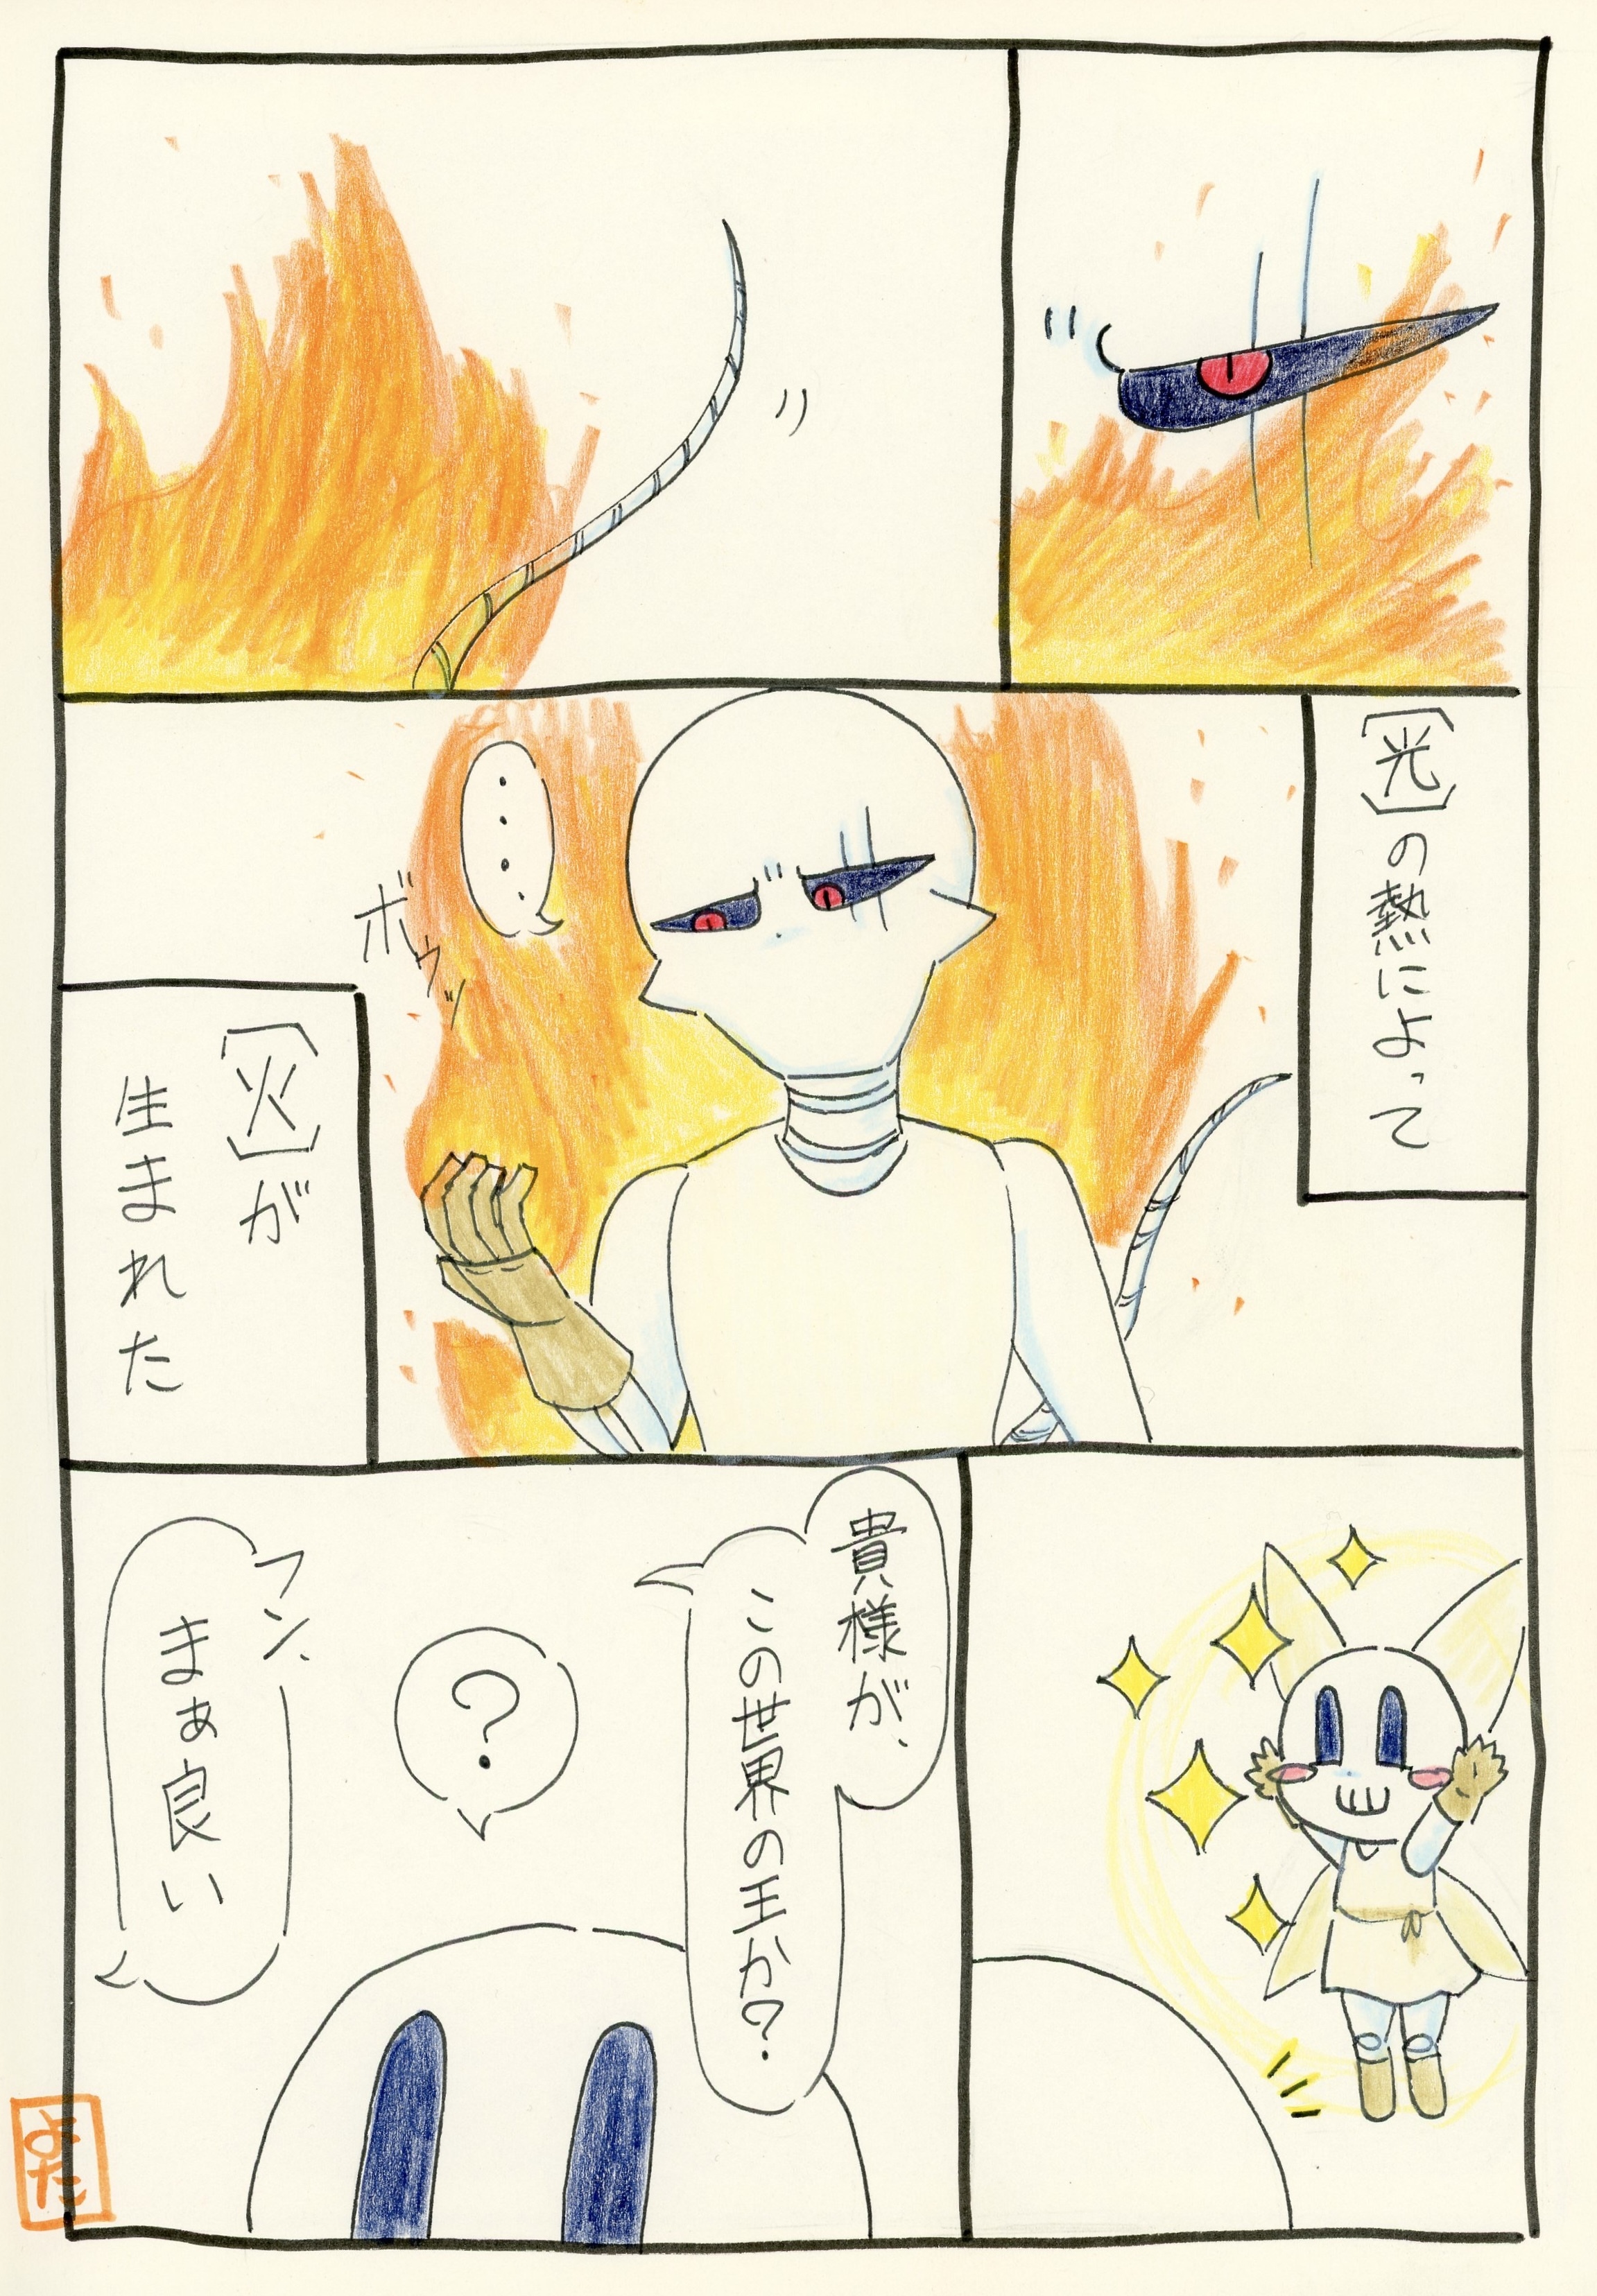 【光】の熱によって
・・・・
ボゥッ
【火】が
生まれた
貴様が、
この世界の王か?
?
フン、
まぁ良い
よた